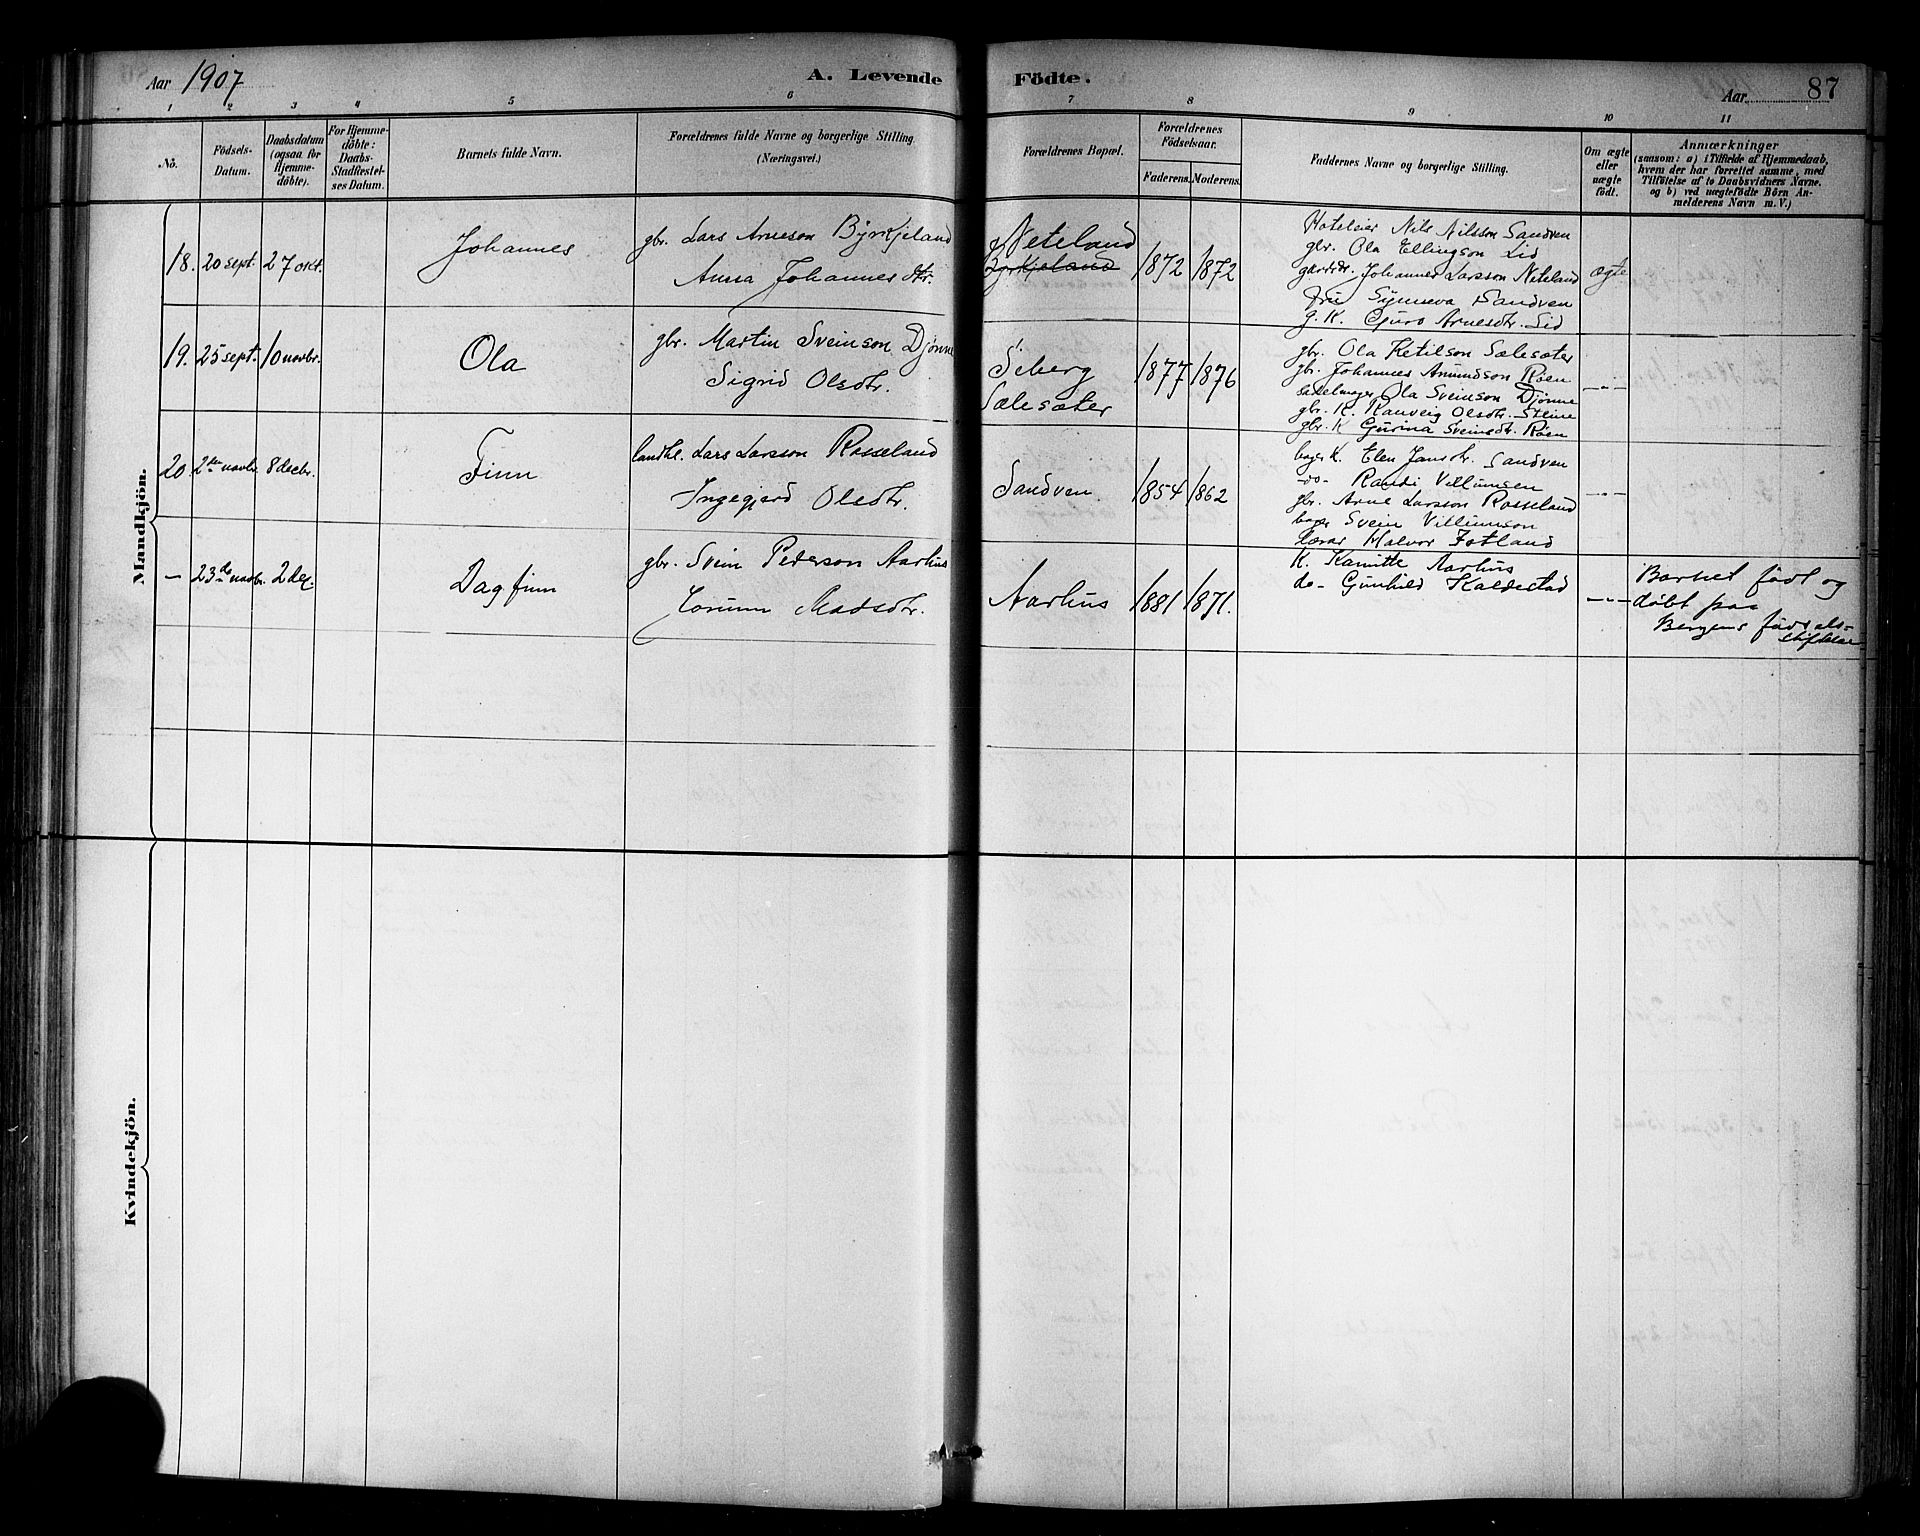 Aar 1907
A. Levende Födte.
Aar 87
1 2 3 4 5 6 7 8 9 10 11
No.
Födsels-
Datum.
Daabsdatum
(ogsaa for
Hjemme-
döbte).
For Hjemme-
döbte:
Daabs-
Stadfæstel-
ses Datum.
Barnets fulde Navn.
Forældrenes fulde Navne og borgerlige Stilling.
(Næringsvei.)
Forældrenes Bopæl.
Forældrenes
Födselsaar.
Faderens. Moderens.
Faddernes Navne og borgerlige Stilling.
Om ægte
eller
uægte
födt.
Anmærkninger
(saasom: a) i Tilfælde af Hjemmedaab,
hvem der har forrettet samme, med
Tilföielse af to Daabsvidners Navne.
og b) ved uægtefödte Börn An-
melderens Navn m. V.)
Mandkjön.
18. 20 sept. 27 okt.
Johannes
gbr. Lars Arneson Byrkjeland
Anna Johannes dtr.
Neteland
Byrkjeland
1872 1872
Hoteleier Nils Nilsson Sandven
gbr. Ola Ellingson Lid
Johannes Larsson Neteland
fru Synneva Sandven
g. K. Guro Arnesdtr. Lid
ægte
19. 25 sept. 10 novbr.
Ola
gbr. Martin Sveinson Djönne
Sigrid Olsdtr.
Seberg
Sælesæter
1877 1876
gbr. Ola Ketilson Sælesæter
gbr. Johannes Amundson Röen
sadelmager Ola Sveinson Djönne
gbr. K. Ranveig Olsdtr. Steine
gbr. K Gurina Sveinsdtr. Röen
-"-
20. 2den novbr. 8 decbr.
Finn
landhl. Lars Larsson Rosseland
Ingegjerd Olsdtr.
Sandven.
1854 1862
bager K. Elen Jansdtr. Sandven
-do- Randi Villumsen
gbr. Arne Larsson Rosseland
bager Svein Villumson
Lærer Halvor Fotland
-"-
- 23de novbr. 2 dec.
Dagfinn
gbr. Svein Pederson Aarhus
Torunn Madsdtr.
Aarhus
1881 1871.
K. Kamitte Aarhus
do- Gunhild Kaldestad
-"-
Barnet födt og
döbt paa
Bergens födsels-
stiftelse
Kvindekjön.